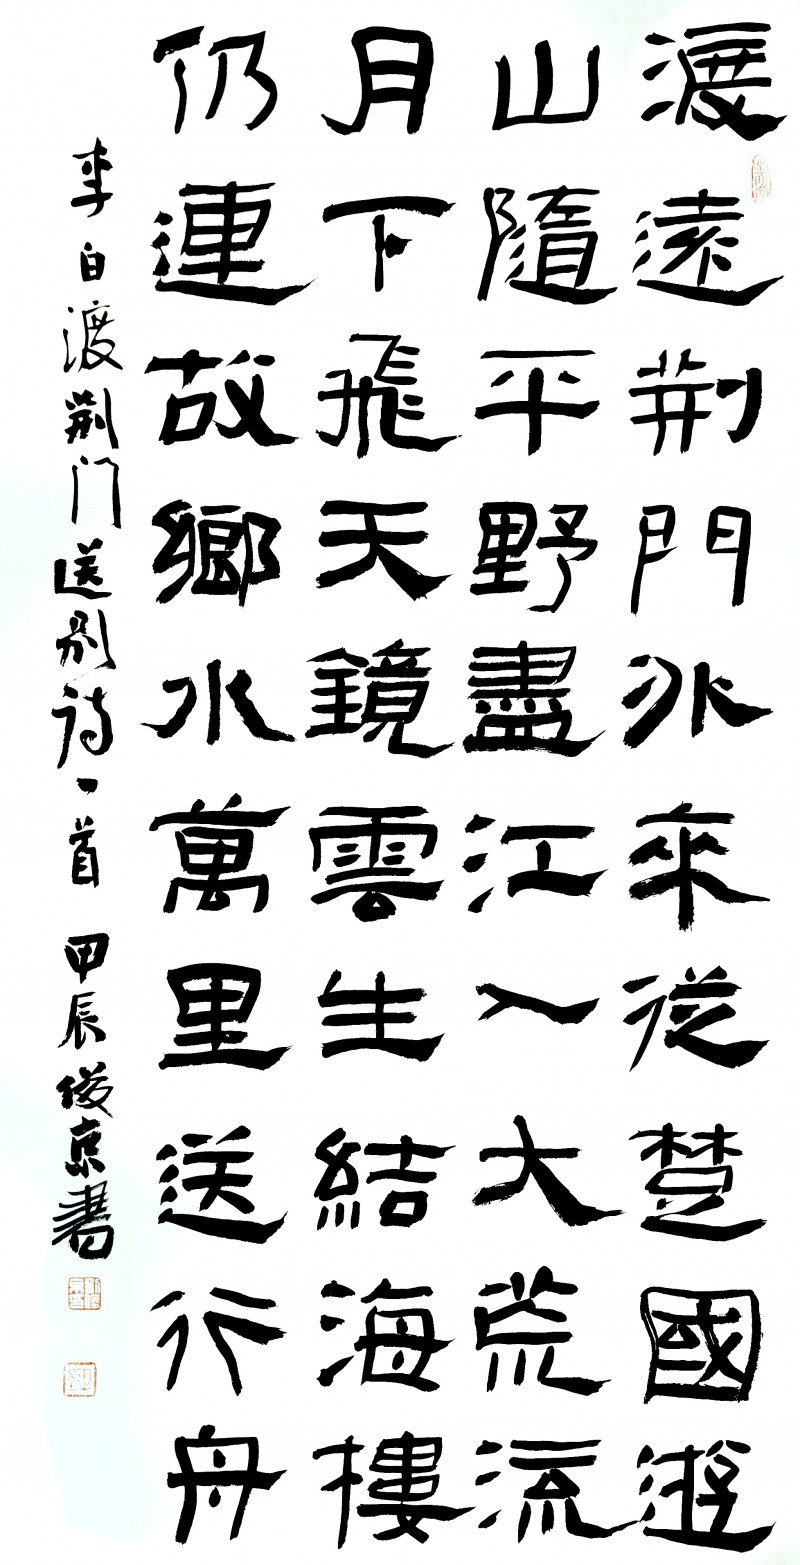 渡遠荆門外來從楚國游
山隨平野盡江入大荒流
月下飛天鏡雲生結海樓
仍連故鄉水萬里送行舟
李白渡荆门送别诗一首 甲辰俊京書